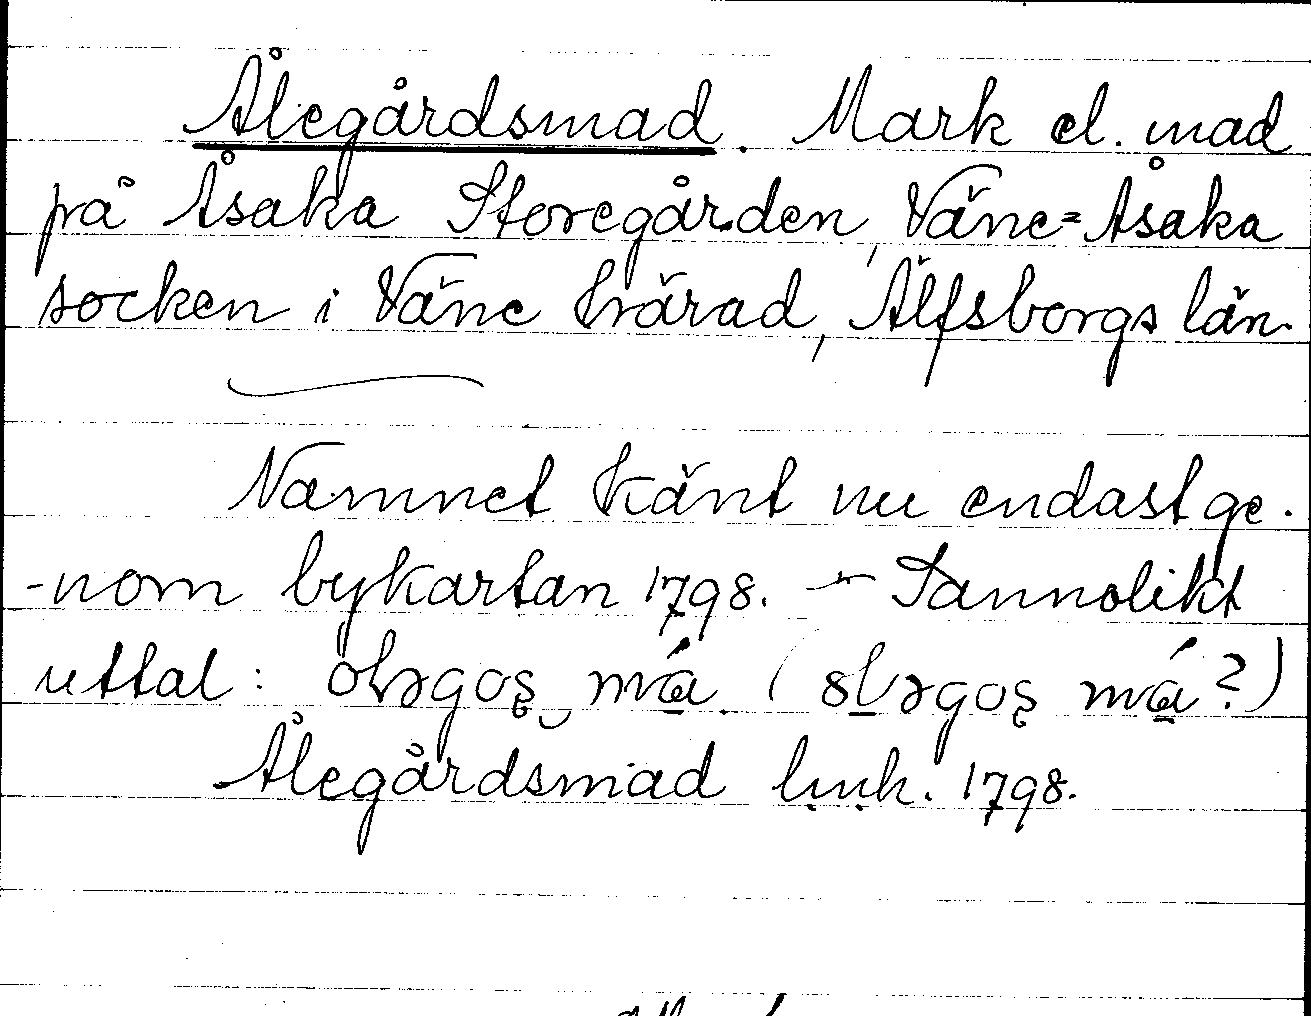 Ålegårdsmad. Mark el. mad
på Åsaka Storegården, Väne=Åsaka
socken i Väne härad, Älfsborgs län.
Namnet känt nu endast ge-
-nom bykartan 1798. – Sannolikt
uttal:
Ålegårdsmad 1798.